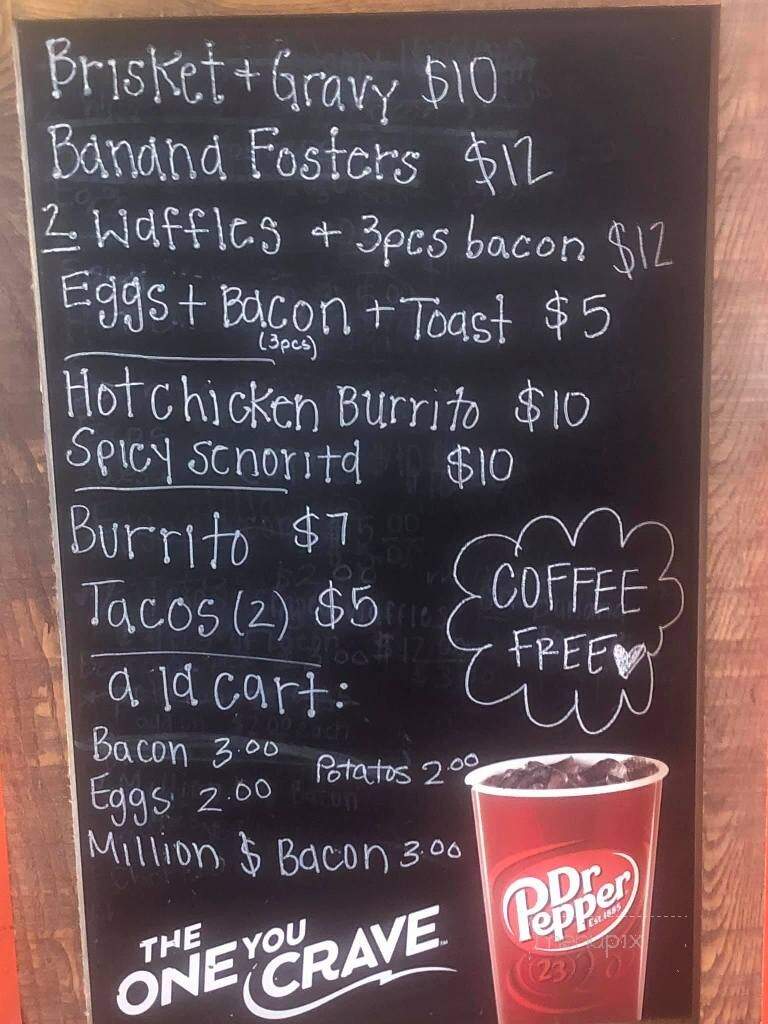 Brisket + Gravy $10
Banana Fosters $12
2 Waffles + 3pcs bacon $12
Eggs + Bacon + Toast $5
(3pcs)
Hot chicken Burrito $10
Spicy senorita $10
Burrito $7
Tacos (2) $5
COFFEE
FREE
a la cart:
Bacon 3.00
Potatos 2.00
Eggs 2.00
Million $ Bacon 3.00
THE
ONE YOU
CRAVE
Dr
Pepper
Est. 1885
23